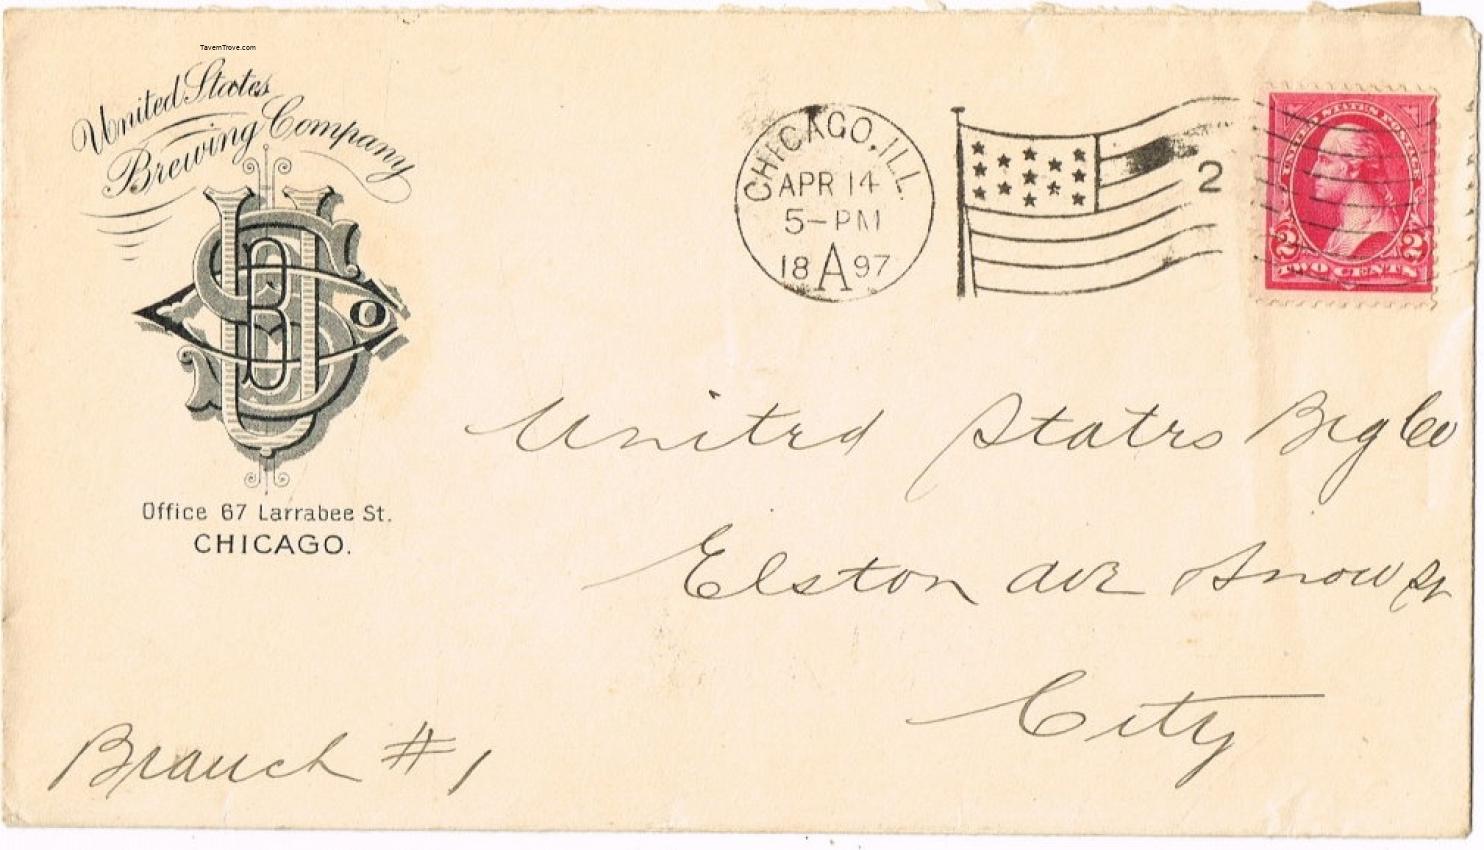 TavernTrove.com
United States
Brewing Company
USB Co
Office 67 Larrabee St.
CHICAGO.
CHICAGO, ILL.
APR 14
5-PM
18 A 97
2
UNITED STATES POSTAGE
2 2
TWO CENTS
United States Brg Co
Elston Ave Snow St
City
Branch # 1